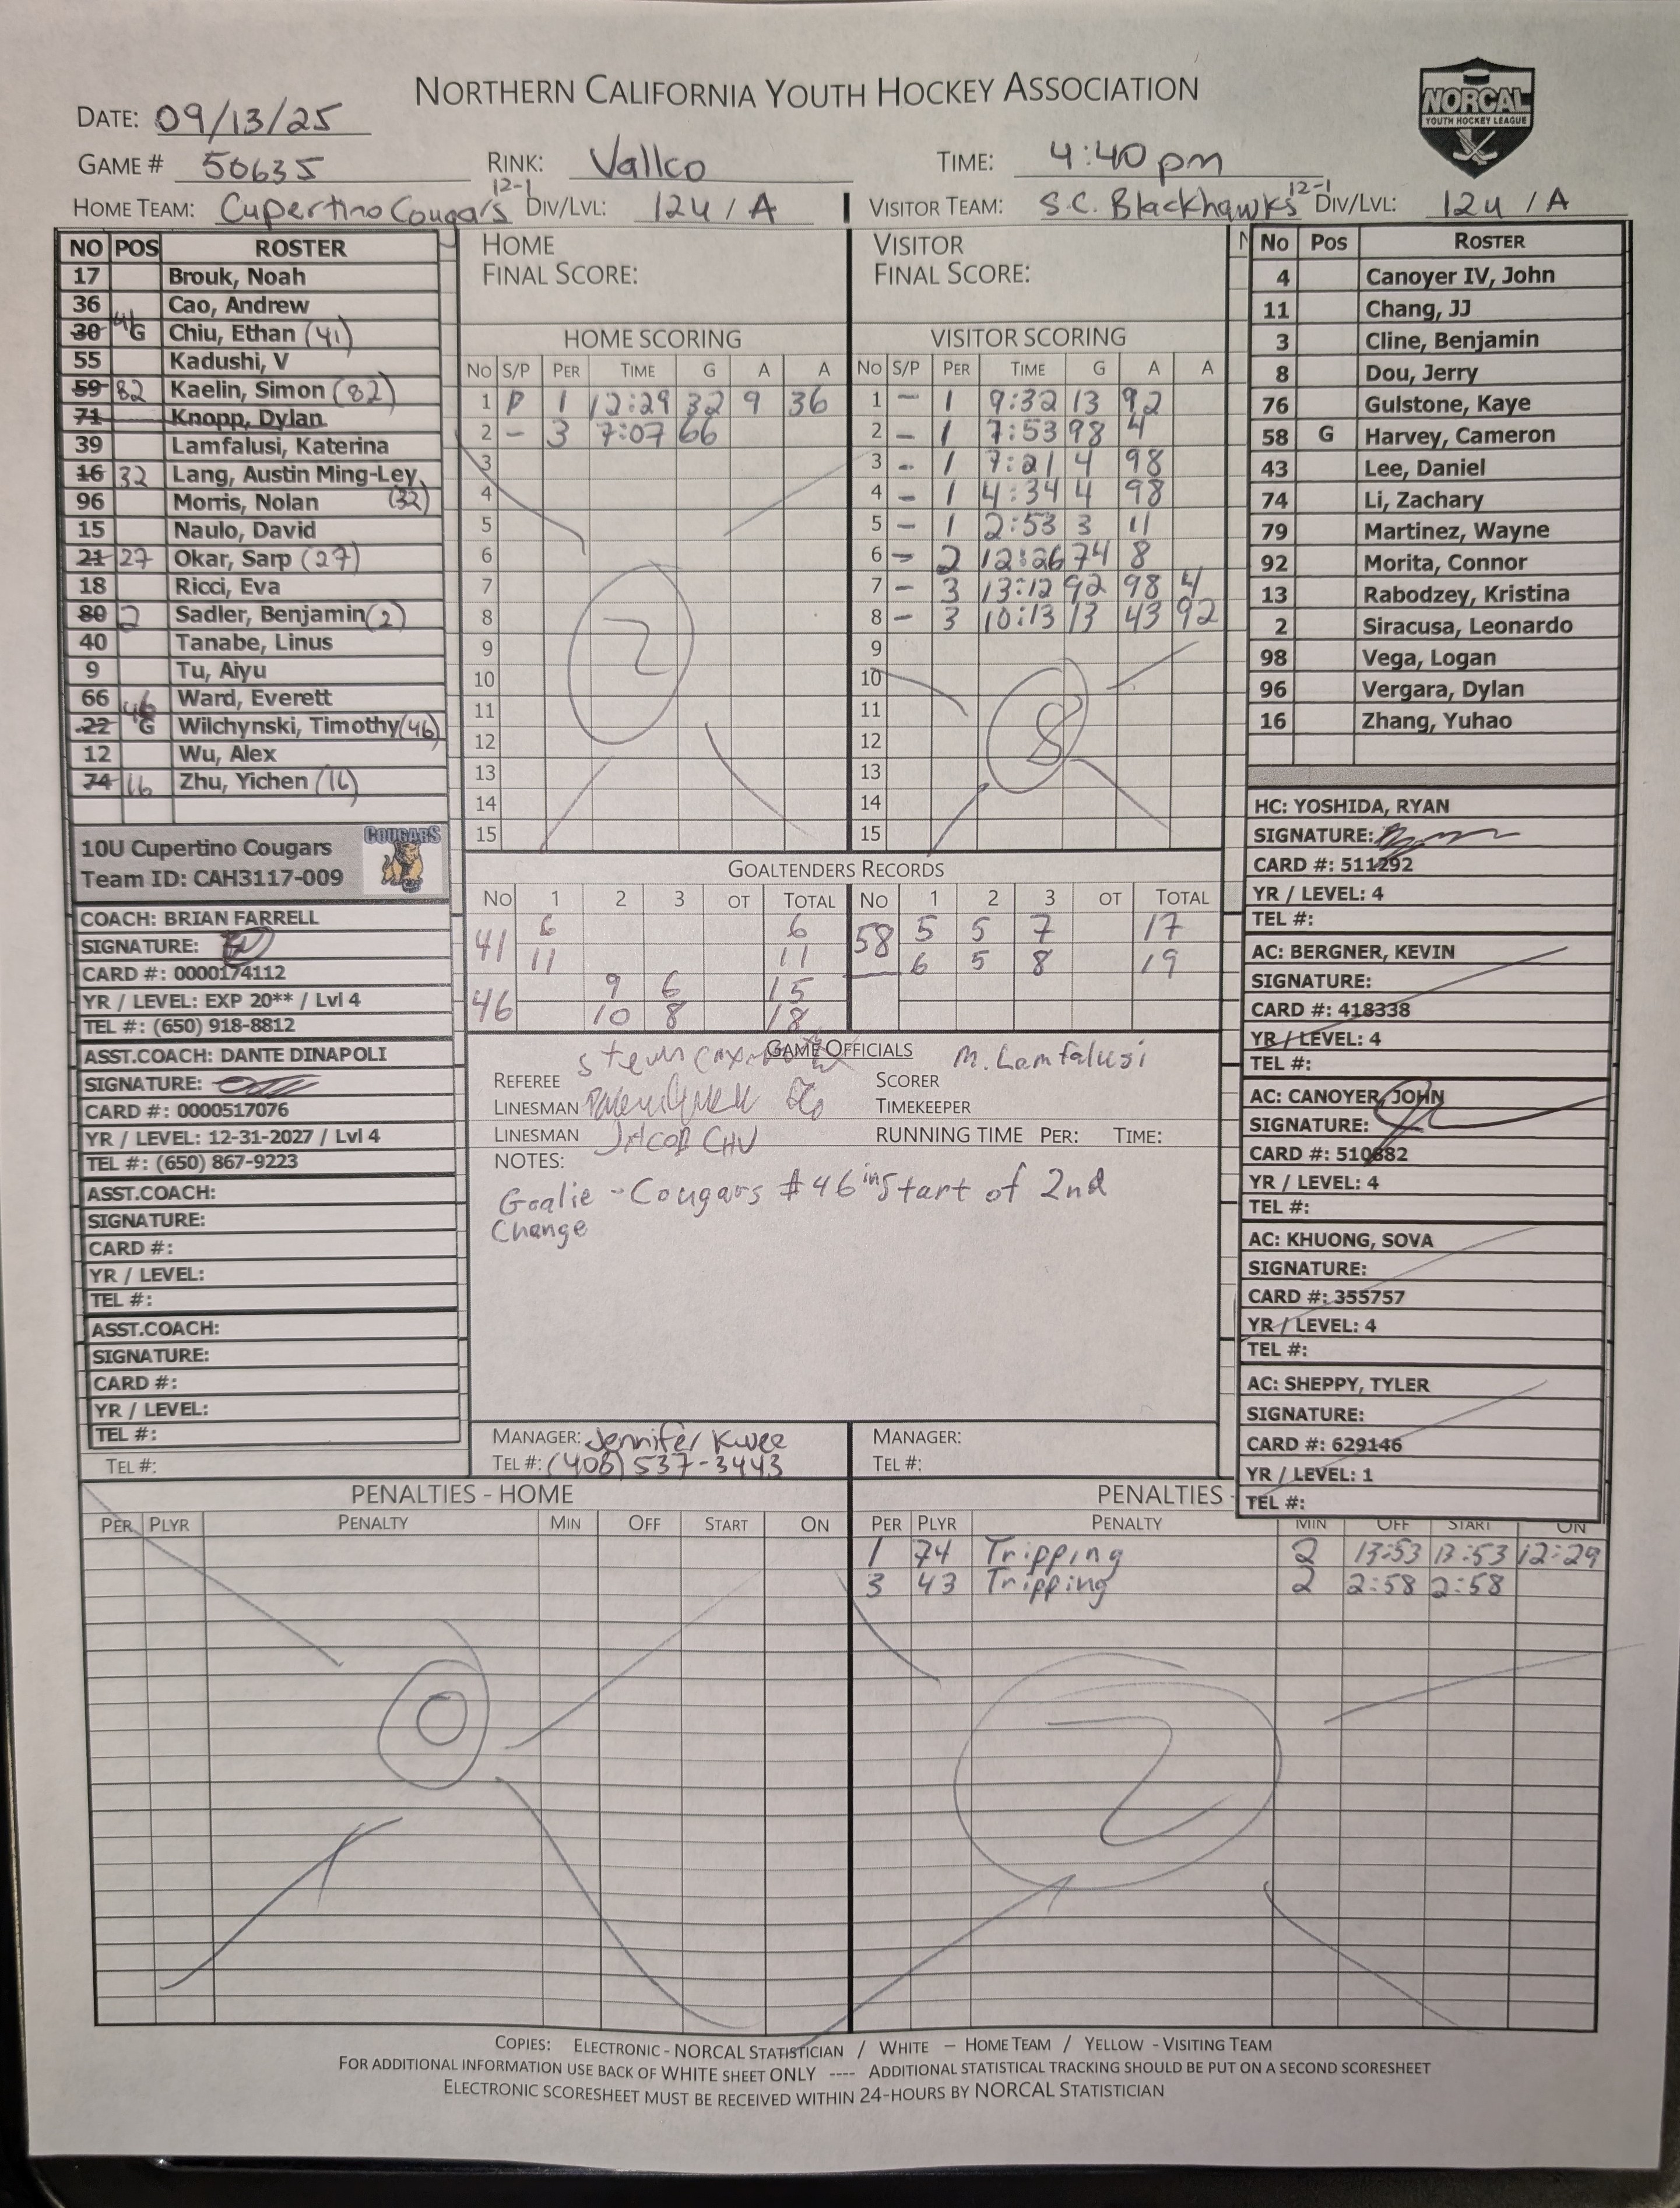 NORTHERN CALIFORNIA YOUTH HOCKEY ASSOCIATION
NORCAL
YOUTH HOCKEY LEAGUE
DATE: 09/13/25
GAME # 50635 RINK: Vallco TIME: 4:40 pm
HOME TEAM: Cupertino Cougars 12-1 DIV/LVL: 12u / A
VISITOR TEAM: S.C. Blackhawks 12-1 DIV/LVL: 12u / A
NO POS ROSTER
17 Brouk, Noah
36 Cao, Andrew
30 41 G Chiu, Ethan (41)
55 Kadushi, V
59 82 Kaelin, Simon (82)
71 Knopp, Dylan
39 Lamfalusi, Katerina
16 32 Lang, Austin Ming-Ley
96 Morris, Nolan (32)
15 Naulo, David
21 27 Okar, Sarp (27)
18 Ricci, Eva
80 2 Sadler, Benjamin (2)
40 Tanabe, Linus
9 Tu, Aiyu
66 Ward, Everett
22 46 G Wilchynski, Timothy (46)
12 Wu, Alex
74 16 Zhu, Yichen (16)
10U Cupertino Cougars
Team ID: CAH3117-009
COUGARS
COACH: BRIAN FARRELL
SIGNATURE:
CARD #: 0000174112
YR / LEVEL: EXP 20** / Lvl 4
TEL #: (650) 918-8812
ASST.COACH: DANTE DINAPOLI
SIGNATURE:
CARD #: 0000517076
YR / LEVEL: 12-31-2027 / Lvl 4
TEL #: (650) 867-9223
ASST.COACH:
SIGNATURE:
CARD #:
YR / LEVEL:
TEL #:
ASST.COACH:
SIGNATURE:
CARD #:
YR / LEVEL:
TEL #:
TEL #:
HOME
FINAL SCORE:
HOME SCORING
NO S/P PER TIME G A A
1 P 1 12:29 32 9 36
2 - 3 7:07 66
3
4
5
6
7
8
9
10
11
12
13
14
15
2
VISITOR
FINAL SCORE:
VISITOR SCORING
NO S/P PER TIME G A A
1 - 1 9:32 13 92
2 - 1 7:53 98 4
3 - 1 7:21 4 98
4 - 1 4:34 4 98
5 - 1 2:53 3 11
6 - 2 12:26 74 8
7 - 3 13:12 92 98 4
8 - 3 10:13 13 43 92
9
10
11
12
13
14
15
8
GOALTENDERS RECORDS
NO 1 2 3 OT TOTAL NO 1 2 3 OT TOTAL
41 6 6 58 5 5 7 17
11 11 6 5 8 19
46 9 6 15
10 8 18
GAME OFFICIALS
REFEREE SCORER M. Lamfalusi
LINESMAN TIMEKEEPER
LINESMAN JACOB CHU RUNNING TIME PER: TIME:
NOTES:
Goalie - Cougars #46 in Start of 2nd
Change
MANAGER: Jennifer Kwee
TEL #: (408) 537-3443
MANAGER:
TEL #:
N
No Pos ROSTER
4 Canoyer IV, John
11 Chang, JJ
3 Cline, Benjamin
8 Dou, Jerry
76 Gulstone, Kaye
58 G Harvey, Cameron
43 Lee, Daniel
74 Li, Zachary
79 Martinez, Wayne
92 Morita, Connor
13 Rabodzey, Kristina
2 Siracusa, Leonardo
98 Vega, Logan
96 Vergara, Dylan
16 Zhang, Yuhao
HC: YOSHIDA, RYAN
SIGNATURE:
CARD #: 511292
YR / LEVEL: 4
TEL #:
AC: BERGNER, KEVIN
SIGNATURE:
CARD #: 418338
YR / LEVEL: 4
TEL #:
AC: CANOYER, JOHN
SIGNATURE:
CARD #: 510882
YR / LEVEL: 4
TEL #:
AC: KHUONG, SOVA
SIGNATURE:
CARD #: 355757
YR / LEVEL: 4
TEL #:
AC: SHEPPY, TYLER
SIGNATURE:
CARD #: 629146
YR / LEVEL: 1
TEL #:
PENALTIES - HOME
PER PLYR PENALTY MIN OFF START ON
0
PENALTIES -
PER PLYR PENALTY MIN OFF START ON
1 74 Tripping 2 13:53 13:53 12:29
3 43 Tripping 2 2:58 2:58
2
COPIES: ELECTRONIC - NORCAL STATISTICIAN / WHITE – HOME TEAM / YELLOW - VISITING TEAM
FOR ADDITIONAL INFORMATION USE BACK OF WHITE SHEET ONLY ---- ADDITIONAL STATISTICAL TRACKING SHOULD BE PUT ON A SECOND SCORESHEET
ELECTRONIC SCORESHEET MUST BE RECEIVED WITHIN 24-HOURS BY NORCAL STATISTICIAN